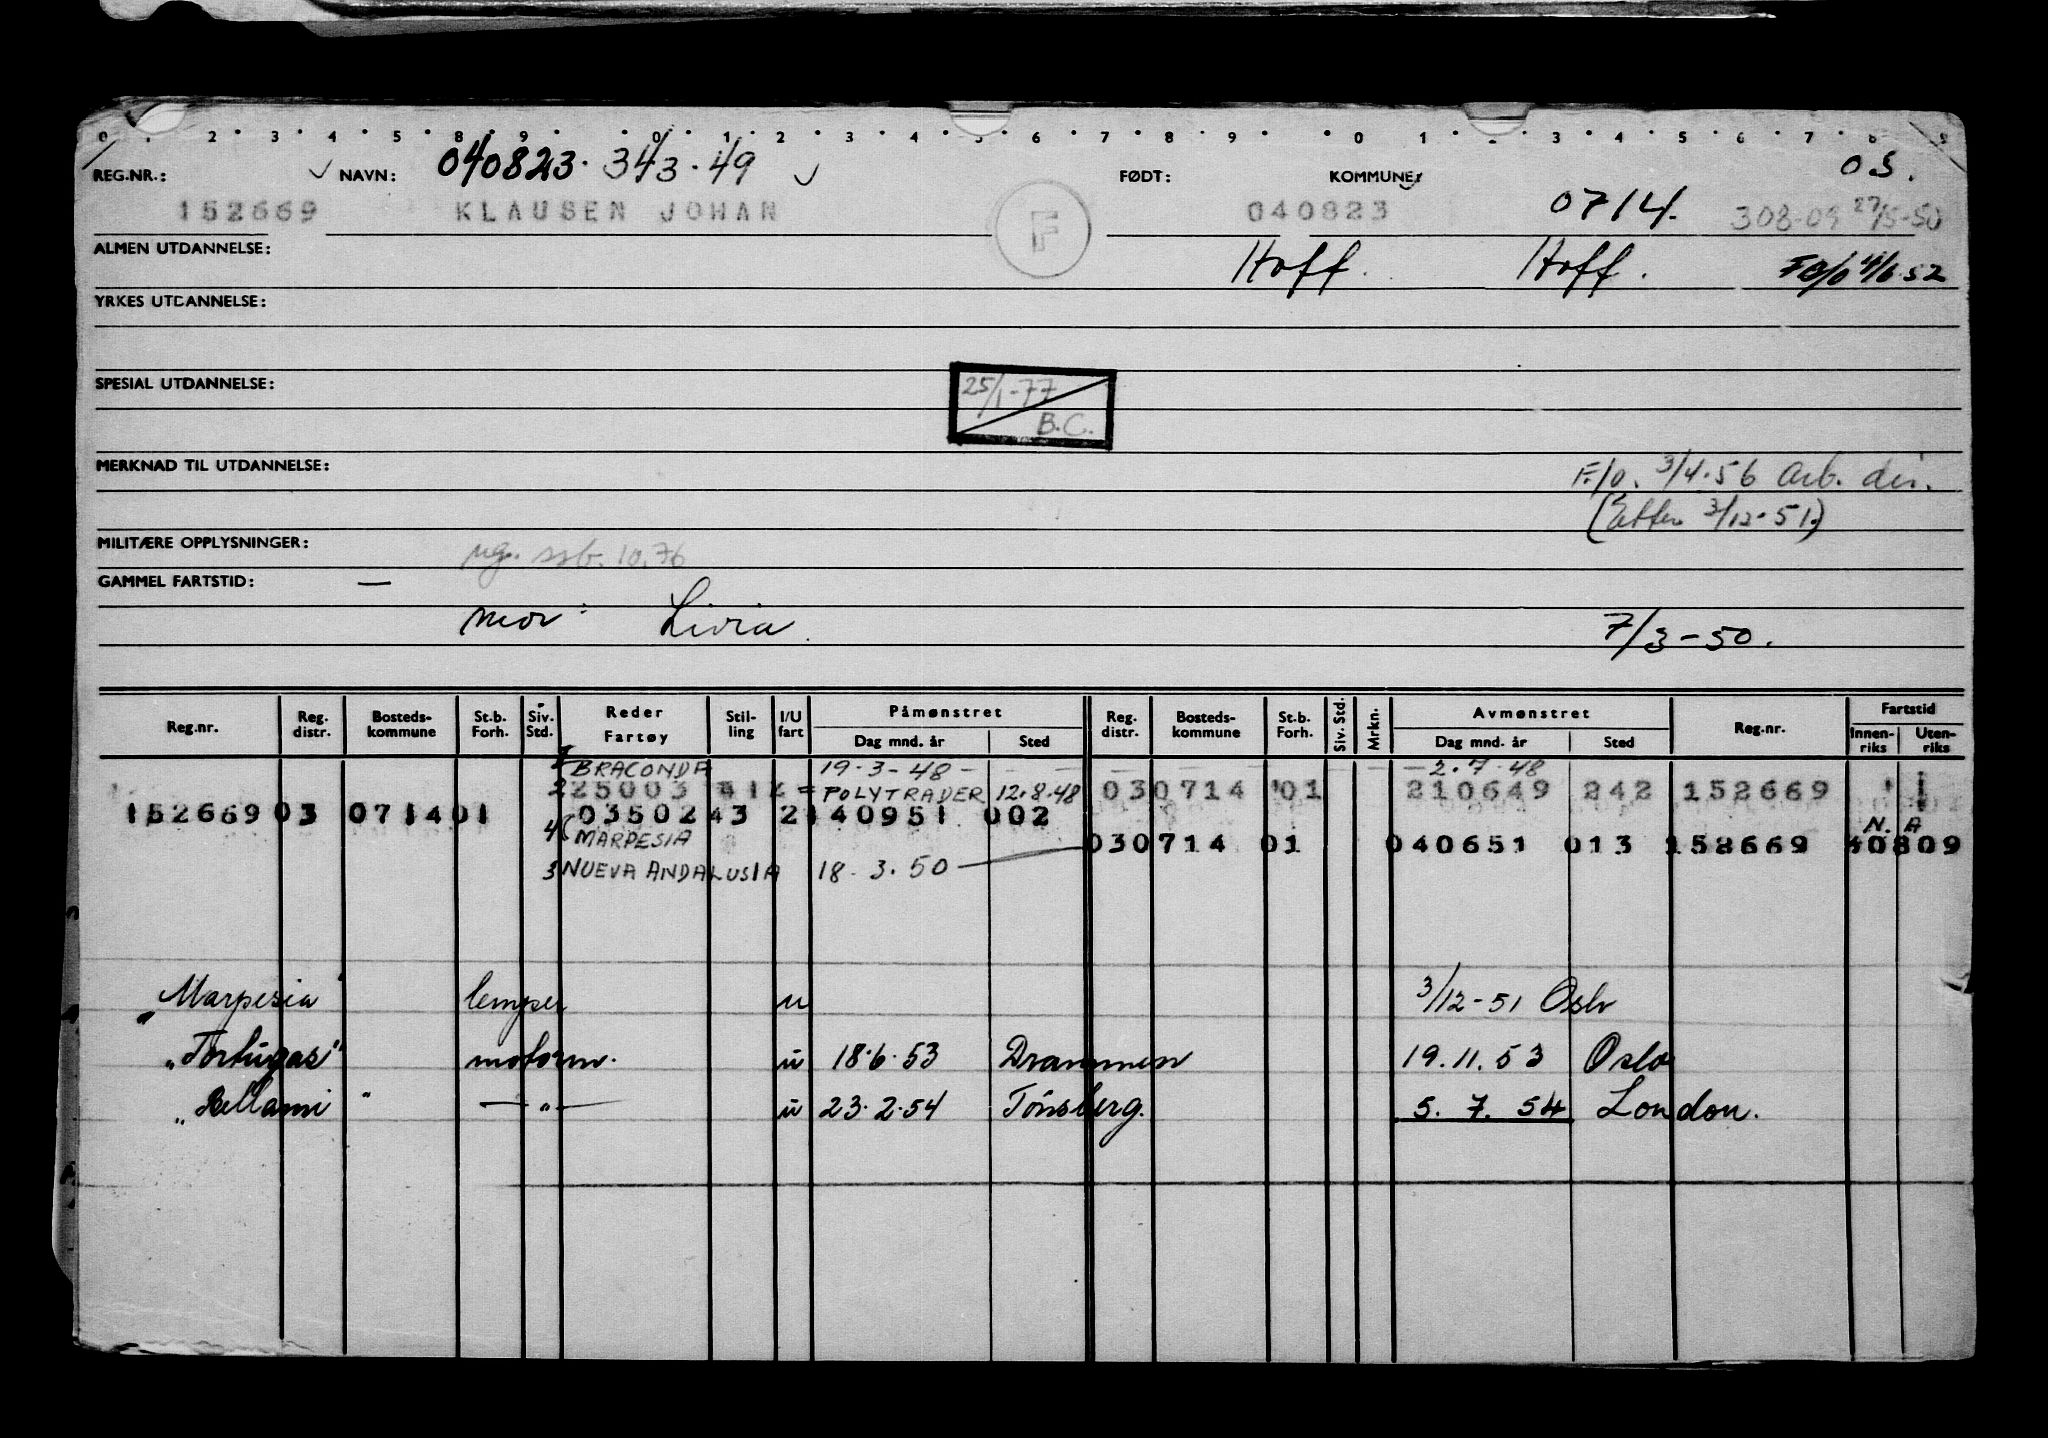 0 2 3 4 5 8 9 0 1 2 3 4 5 6 7 8 9 0 1 2 3 4 5 6 7 8 9
REG.NR.: NAVN: 040823. 343.49 FØDT: KOMMUNE: OS.
152669 KLAUSEN JOHAN F 040823 0714. 308-09 27/5-50
ALMEN UTDANNELSE: Hoff. Hoff. 4/6 52
YRKES UTDANNELSE:
SPESIAL UTDANNELSE: 25/1-77
B.C.
MERKNAD TIL UTDANNELSE: F./o. 3/4.56 Arb. dir.
(Etter 3/12-51.)
MILITÆRE OPPLYSNINGER: 10.76
GAMMEL FARTSTID: —
mor: Livia 7/3-50.
Reg.nr. Reg. distr. Bosteds-kommune St.b. Forh. Siv. Std. Reder Fartøy Stil-ling I/U fart Påmønstret Dag mnd. år Sted Reg. distr. Bosteds-kommune St.b. Forh. Siv. Std. Mrkn. Avmønstret Dag mnd. år Sted Reg.nr. Fartstid Innen-riks Uten-riks
BRACONDA 19-3-48 - 2.7.48
2 25003 412 = POLYTRADER 12.8.48 030714 01 210649 242 152669
152669 03 0714 01 03502 43 2 140951 002
4 MARPESIA 030714 01 040651 013 152669 40809
N. A
3 NUEVA ANDALUSIA 18.3.50
"Marpesia" lemper u 3/12-51 Oslo
"Tortugas" motorm. u 18.6.53 Drammen 19.11.53 Oslo
"Bellami" —"— u 23.2.54 Tönsberg. 5.7.54 London.